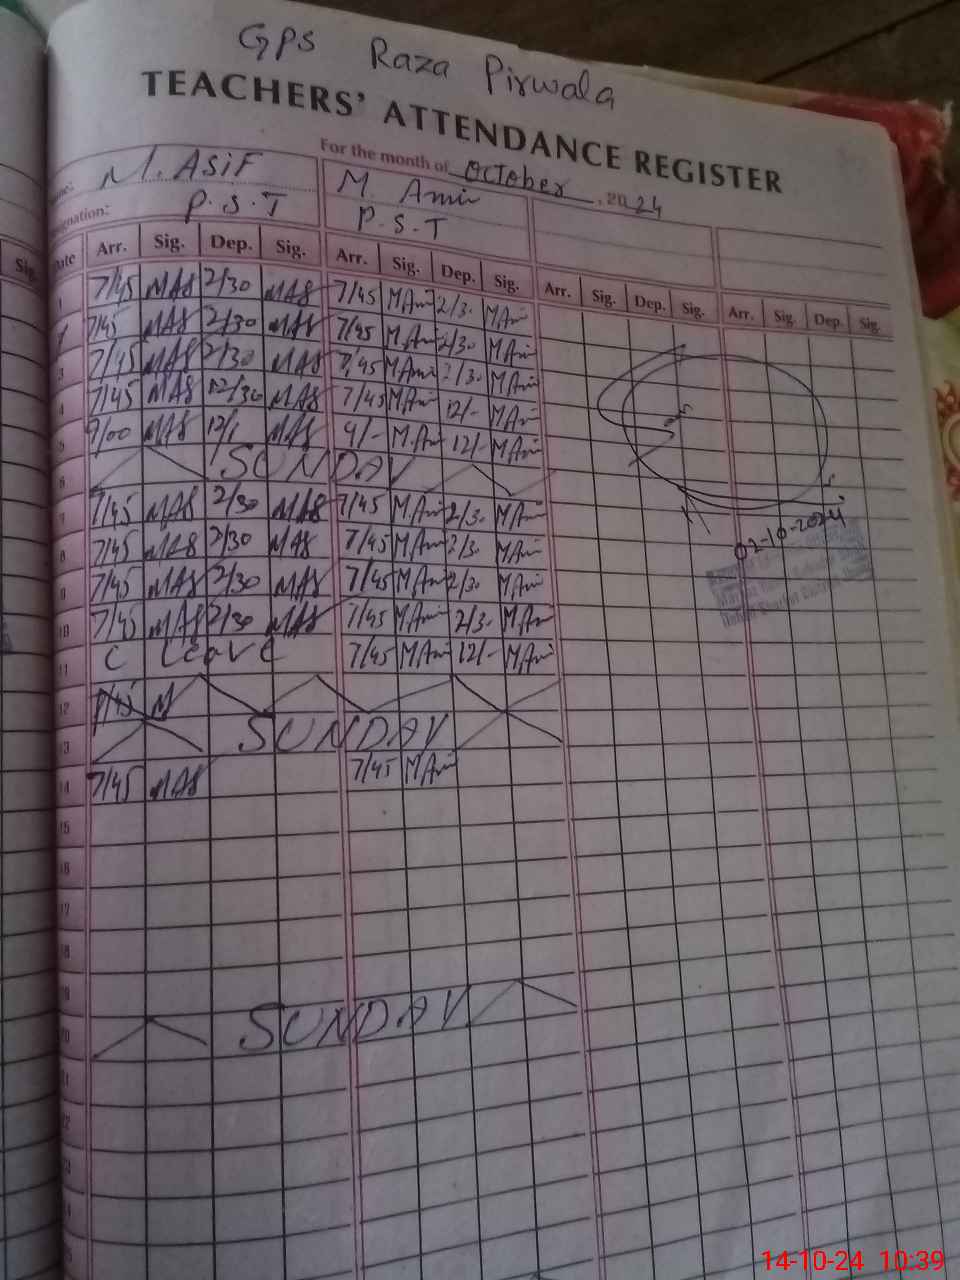 GPS Raza Pirwala
TEACHERS' ATTENDANCE REGISTER
For the month of October, 2024
M. ASiF M. Amir
Designation: P.S.T P.S.T
Date Arr. Sig. Dep. Sig. Arr. Sig. Dep. Sig. Arr. Sig. Dep. Sig. Arr. Sig. Dep. Sig.
1 7/45 MAS 2/30 MAS 7/45 M Amir 2/30 M Amir
2 7/45 MAS 2/30 MAS 7/45 M Amir 2/30 M Amir
3 7/45 MAS 2/30 MAS 7/45 M Amir 2/30 M Amir
4 7/45 MAS 12/30 MAS 7/45 M Amir 12/- M Amir
5 9/00 MAS 12/1 MAS 9/- M. Amir 12/- M Amir
6 SUNDAY
7 7/45 MAS 2/30 MAS 7/45 M Amir 2/30 M Amir
8 7/45 MAS 2/30 MAS 7/45 M Amir 2/30 M Amir
02-10-2024
9 7/45 MAS 2/30 MAS 7/45 M Amir 2/30 M Amir
10 7/45 MAS 2/30 MAS 7/45 M Amir 2/30 M Amir
11 C Leave 7/45 M Amir 12/- M Amir
12 7/45 M
13 SUNDAY
14 7/45 MAS 7/45 M Amir
15
16
17
18
19
20 SUNDAY
21
22
23
24
14-10-24 10:39